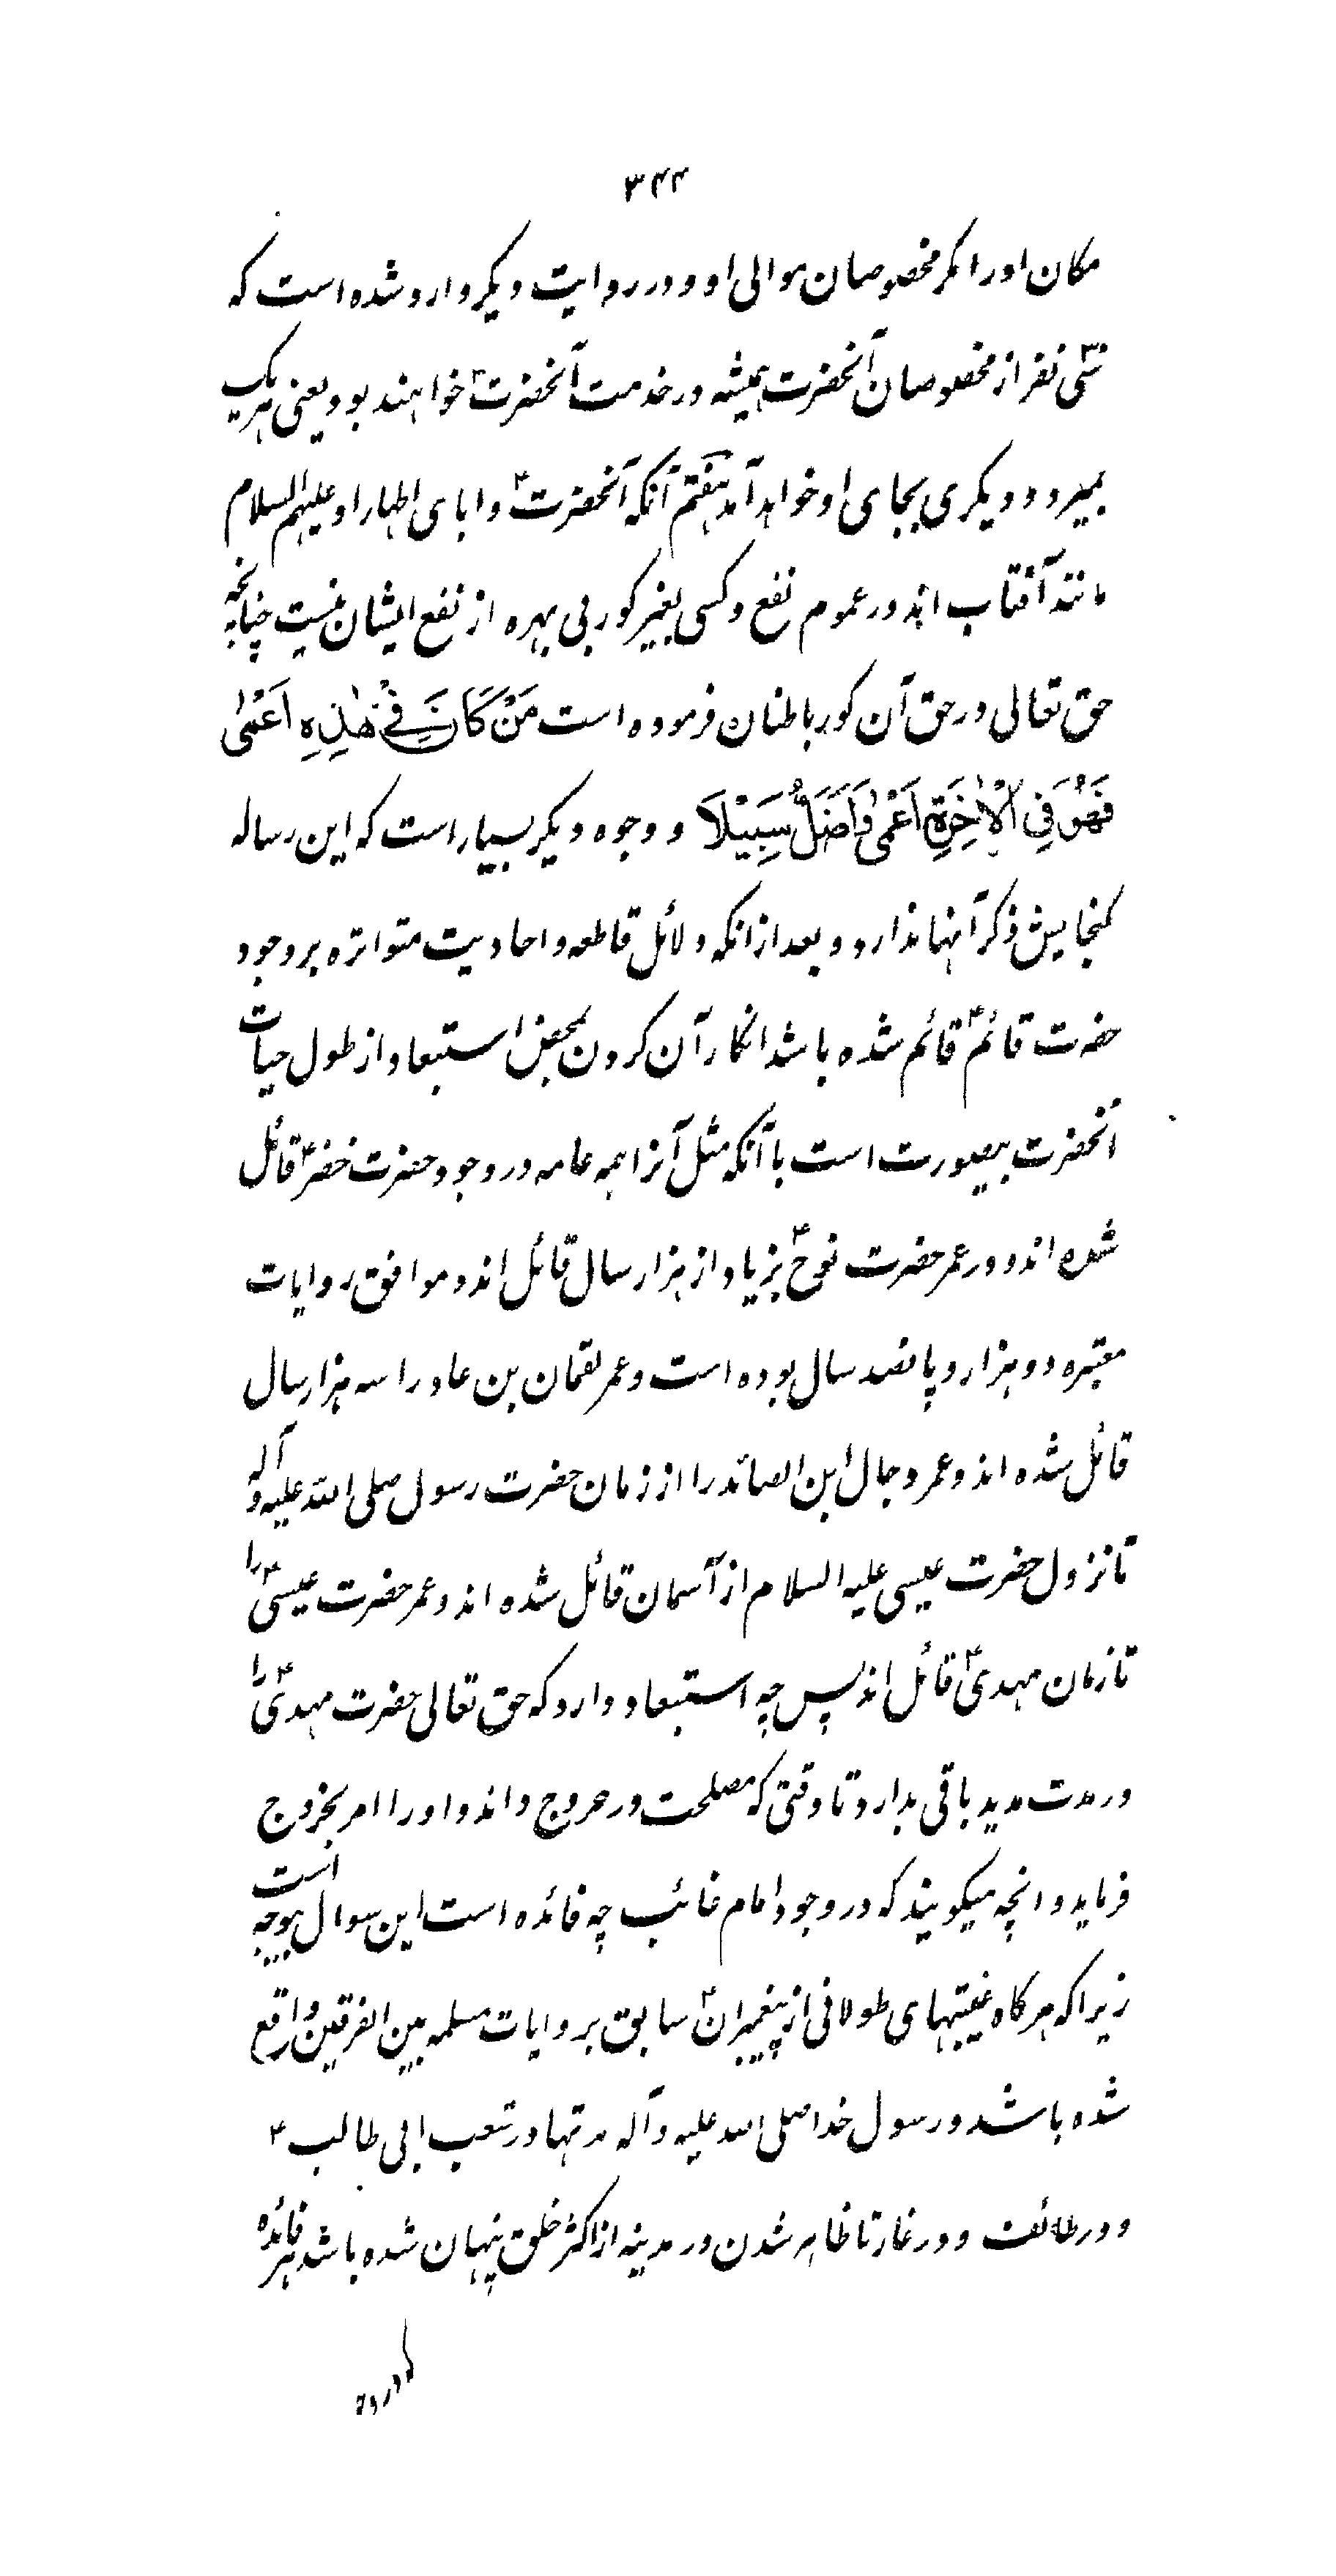 ۳۴۴
مکان او را مکر مخصوصان موالی او و در روایت دیکر وارد شده است که
سی نفر از مخصوصان آنحضرت همیشه در خدمت آنحضرتؑ خواهند بود یعنی هر یک
بمیرد و دیکری بجای او خواهد آمد هفتم آنکه آنحضرتؑ و ابای اطهار او علیهم السلام
مانند آفتاب اند در عموم نفع و کسی بغیر کور بی بهره از نفع ایشان نیست چنانچه
حق تعالی در حق آن کور باطنان فرموده است مَنْ کَانَ فِیْ هٰذِهِ اَعْمٰی
فَهُوَ فِی الْاٰخِرَةِ اَعْمٰی وَاَضَلُّ سَبِیْلَاً و وجوه دیکر بسیار است که این رساله
کنجایش ذکر آنها ندارد و بعد از انکه دلائل قاطعه و احادیث متواتره بر وجود
حضرت قائمؑ قائم شده باشد انکار آن کردن بمحض استبعاد از طول حیات
آنحضرت بیصورت است با آنکه مثل آنرا همه عامه در وجود حضرت خضرؑ قائل
شده اند و در عمر حضرت نوحؑ بزیاد از هزار سال قائل اند و موافق روایات
معتبره دو هزار و پانصد سال بوده است و عمر لقمان بن عاد را سه هزار سال
قائل شده اند و عمر دجال ابن الصائد را از زمان حضرت رسول صلی الله علیه و آله
تا نزول حضرت عیسی علیه السلام از آسمان قائل شده اند و عمر حضرت عیسیؑ را
تا زمان مهدیؑ قائل اند پس چه استبعاد دارد که حق تعالی حضرت مهدیؑ را
در مدت مدید باقی بدارد تا وقتی که مصلحت در خروج داند و او را امر بخروج
فرماید و انچه میکویند که در وجود امام غائب چه فائده است این سوال بیوجه است
زیرا که هرکاه غیبتهای طولانی از پیغمبرانؑ سابق بر روایات مسلمه بین الفریقین واقع
شده باشد و رسول خدا صلی الله علیه و آله مدتها در شعب ابی طالبؑ
و در طائف و در غار تا ظاهر شدن در مدینه از اکثر خلق پنهان شده باشد هر فائده